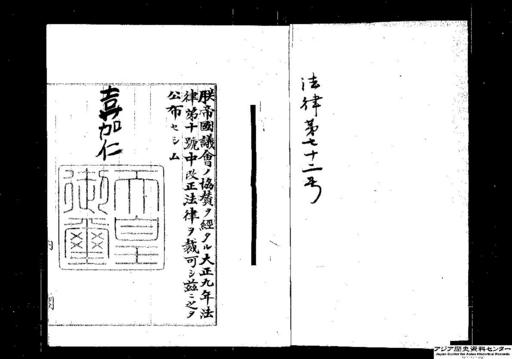 法律第七十二号
朕帝國議會ノ協贊ヲ經タル大正九年法
律第十號中改正法律ヲ裁可シ茲ニ之ヲ
公布セシム
嘉仁
天皇御璽
アジア歴史資料センター
Japan Center for Asian Historical Records